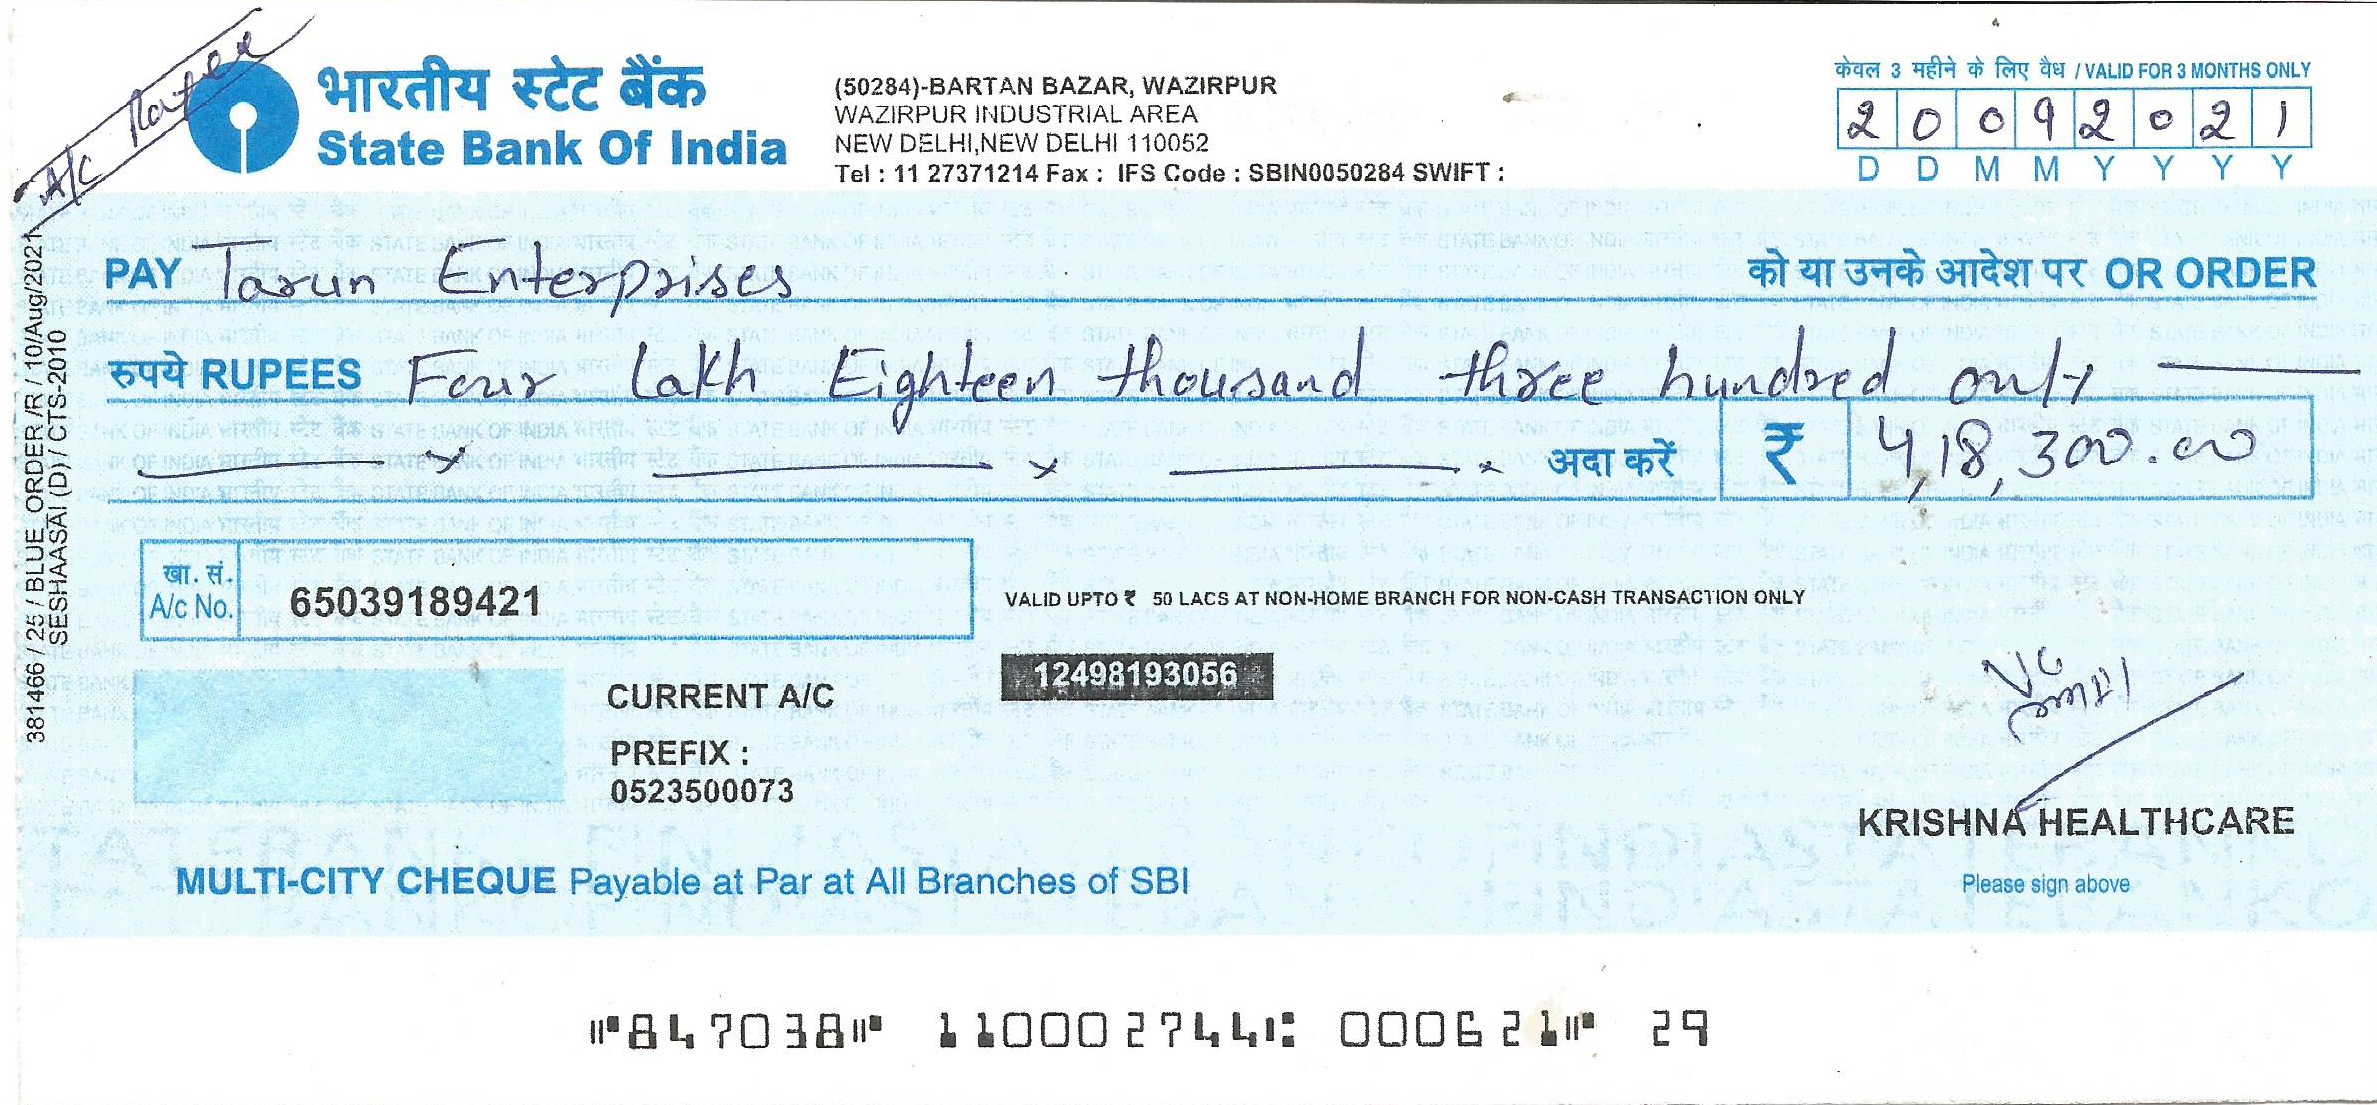 A/C Payee
भारतीय स्टेट बैंक
State Bank Of India
(50284)-BARTAN BAZAR, WAZIRPUR
WAZIRPUR INDUSTRIAL AREA
NEW DELHI,NEW DELHI 110052
Tel : 11 27371214 Fax : IFS Code : SBIN0050284 SWIFT :
केवल 3 महीने के लिए वैध / VALID FOR 3 MONTHS ONLY
2 0 0 9 2 0 2 1
D D M M Y Y Y Y
PAY Tarun Enterprises को या उनके आदेश पर OR ORDER
रुपये RUPEES Four Lakh Eighteen thousand three hundred only
अदा करें ₹ 4,18,300.00
खा. सं.
A/c No. 65039189421
VALID UPTO ₹ 50 LACS AT NON-HOME BRANCH FOR NON-CASH TRANSACTION ONLY
12498193056
CURRENT A/C
PREFIX :
0523500073
KRISHNA HEALTHCARE
Please sign above
MULTI-CITY CHEQUE Payable at Par at All Branches of SBI
381466 / 25 / BLUE_ORDER /R / 10/Aug/2021
SESHAASAI (D) / CTS-2010
⑈847038⑈ 110002744⑆ 000621⑈ 29